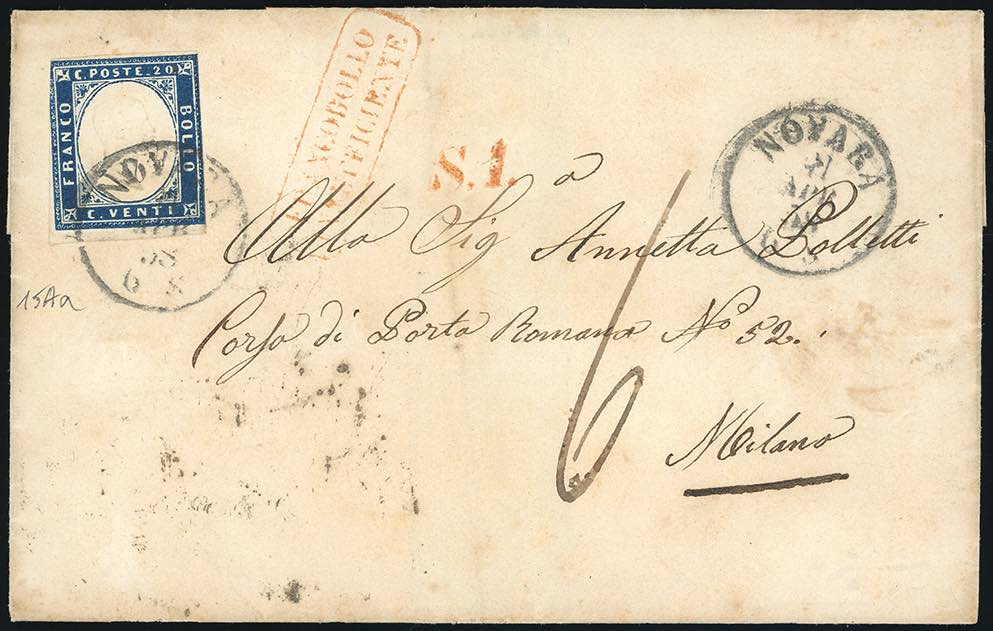 C. POSTE. 20.
FRANCO
BOLLO
C. VENTI
FRANCOBOLLO
INSUFFICIENTE
S.1.
NOVARA
APR
58
6 S
NOVARA
APR
15Aa
Alla Sig.a Annetta Polletti
Corso di Porta Romana No 52.
6
Milano